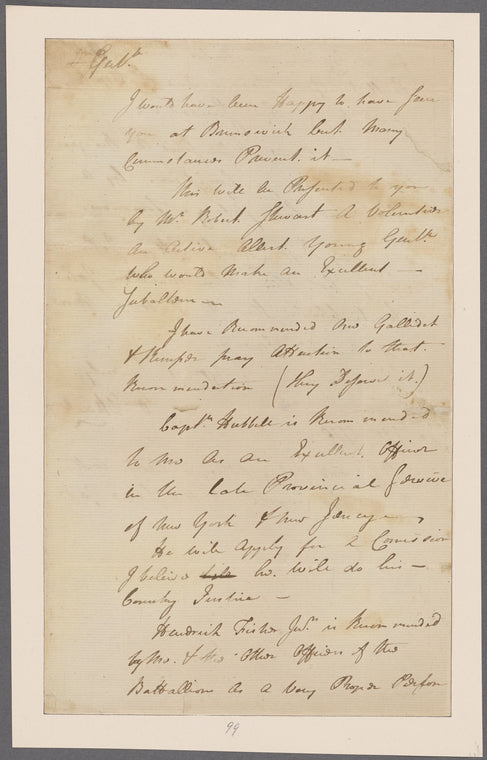 Gentn.
I would have been Happy to have seen
you at Brunswick but Many
Cirumstances Prevent it —
This will be Presented to you
by Mr. Robert Stewart A Volunteer
an Active Allert Young Gentn.
who would Make an Excellent —
Subaltern —
I have Recommended One Gallidet
& Kemper pray Attention to that
Recommendation (They Deserve it.)
Captn. Hubbell is Recommended
to Me As an Excellent Officer
in the late Provincial Service
of New York & New Jersey —
He will Apply for a Comission
I beleive he. will do his —
Country Justice —
Hendrick Fisher Junr. is Recommended
by Me. & the Other Officers of the
Battallion As a Very Proper Person
99